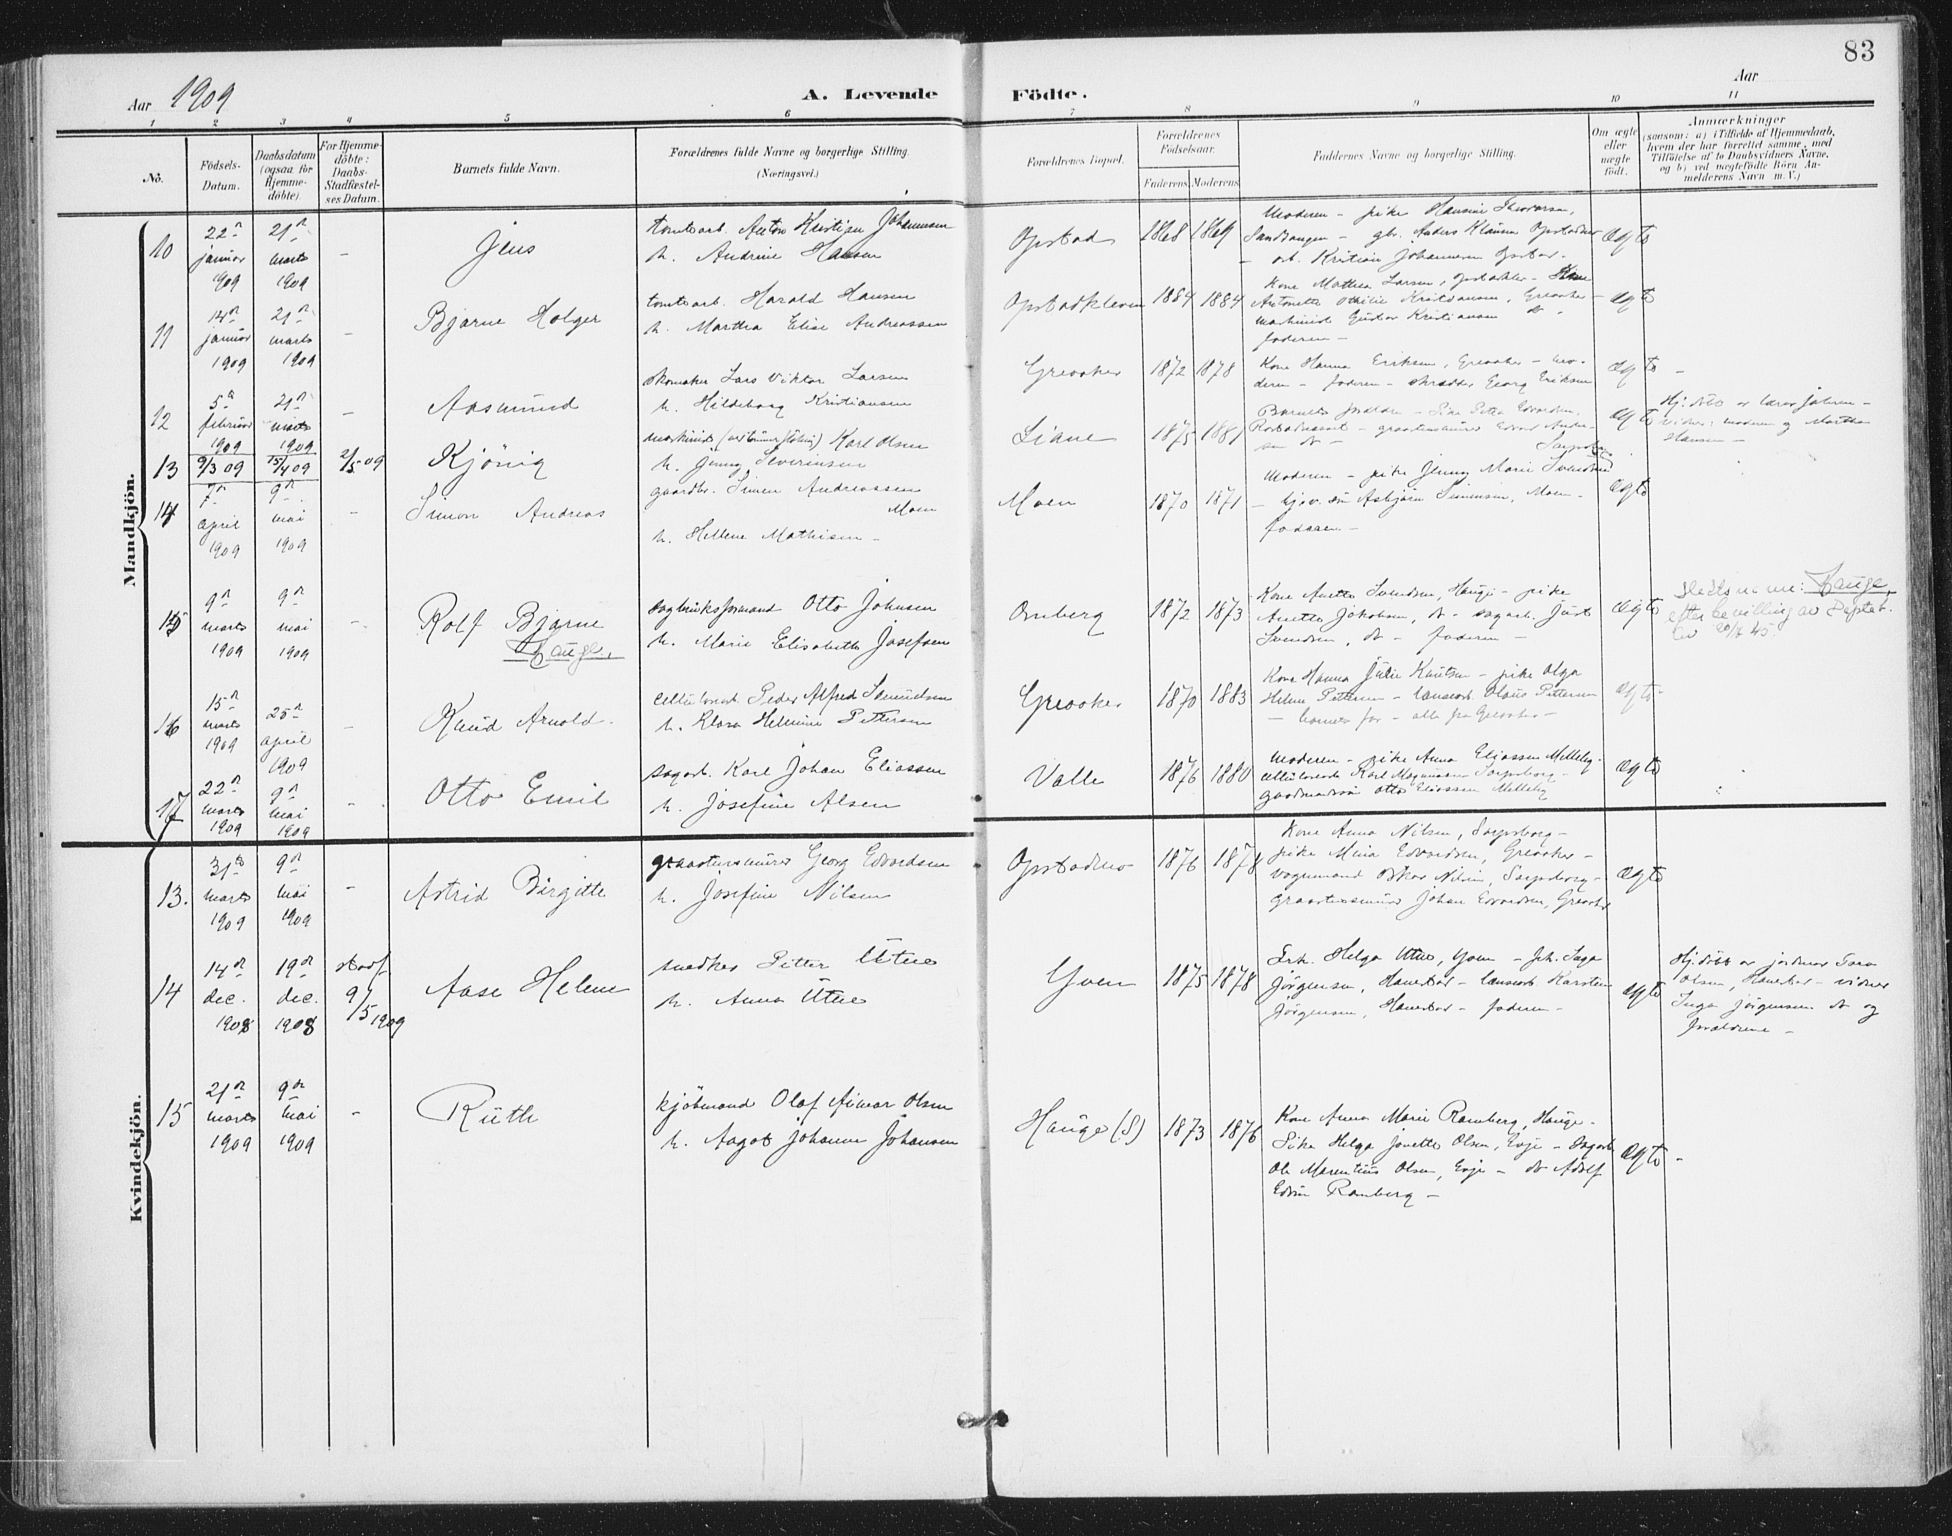 83
Aar 1909
A. Levende Födte.
Aar
1 2 3 4 5 6 7 8 9 10 11
No.
Födsels-Datum.
Daabsdatum (ogsaa for Hjemme-döbte).
For Hjemme-döbte: Daabs-Stadfæstel-ses Datum.
Barnets fulde Navn.
Forældrenes fulde Navne og borgerlige Stilling.
(Næringsvei.)
Forældrenes Bopæl.
Forældrenes Födselsaar.
Faderens Moderens
Faddernes Navne og borgerlige Stilling.
Om ægte eller uægte födt.
Anmærkninger
(saasom: a) i Tilfælde af Hjemmedaab,
hvem der har forrettet samme, med
Tilföielse af to Daabsvidners Navne,
og b) ved uægtefödte Börn An-
melderens Navn m. V.)
Mandkjön.
10 22de januar 1909 21de marts 1909 - Jens
tomtearb. Anton Kristian Johannesen
h. Andrine Hansen
Opstad 1868 1869
ægte
11 14de januar 1909 21de marts 1909 - Bjarne Holger
tomtearb. Harald Hansen
h. Martha Elise Andreassen
Opstadkleven 1884 1884
maskinist Gustav Kristiansen do -
faderen -
ægte
12 5te februar 1909 21de marts 1909 - Aasmund
skomaker Lars Viktor Larsen
h. Hildeborg Kristiansen
Greaaker 1872 1878
Kone Hanna Eriksen, Greaaker - mo-
deren - faderen - skrædder Georg Eriksen
ægte -
13 9/3 09 15/4 09 2/5 09 Kjönig
maskinist Karl Olsen
h. Jenny Severinsen
Liane 1875 1881
ægte
Hj: döbt av lærer Johan-
vidner: moderen og Martha
Hansen -
14 7de april 1909 9de mai 1909 - Simon Andreas
gaardbr. Simen Andreassen
Moen
h. Hellene Mathisen -
Moen 1870 1871
Moderen - pike Jenny Marie Svendsen
- Asbjörn Simensen, Moen -
ægte
15 9de marts 1909 9de mai 1909 - Rolf Bjarne
Hauge.
sagbruksformand Otto Johnsen
h. Marie Elisabeth Josefsen
Omberg 1872 1873
Kone Anette Svendsen, Hauge - pike
Anette Jakobsen, do - sagarb. Just
Svendsen, do - faderen -
ægte
Slektsnavn: Hauge,
efter bevilling av
45.
16 15de marts 1909 25de april 1909 - Knud Arnold.
cellulosearb. Peder Alfred Semundsen
h. Klara Helmine Pettersen
Greaaker 1870 1883
Kone Hanna Julie Knutsen - pike Olga
Helene Pettersen - Olaus Pettersen
- barnets far - alle fra Greaaker -
ægte
17 22de marts 1909 9de mai 1909 - Otto Emil
sagarb. Karl Johan Eliassen
h. Josefine Alsen
Valle 1876 1880
Moderen - pike Anna Eliassen Melleby -
cellulosearb. Karl Magnussen Sarpsborg -
gaardmandssön Otto Eliassen Melleby
ægte
Kvindekjön.
13. 31te marts 1909 9de mai 1909 - Astrid Birgitte
graastensmurer Georg Edvardsen
h. Josefine Nilsen
1876 1878
Kone Anna Nilsen, Sarpsborg -
pike Mina Edvardsen, Greaaker -
vognmand Oskar Nilsen, Sarpsborg -
graastensmurer Johan Edvardsen, Greaaker
ægte
14 14de dec. 1908 19de dec. 1908 stadf. 9/5 1909 Aase Helene
snedker Petter Utne
h. Anna Utne
Yven 1875 1878
Frk. Helga Utne, Yven - frk. Inga
Jörgensen, Hanestad - Karsten
Jörgensen, Hanestad - faderen -
ægte
Hj.döbt av jordmor
Olsen, Hanestad - vidner
Inga Jörgensen do og
forældrene -
15 21de marts 1909 9de mai 1909 - Ruth
kjöbmand Olaf Aimar Olsen
h. Aagot Johanne Johansen
Hauge (S) 1873 1876
Kone Anna Marie Ramberg, Hauge -
Pike Helga Janette Olsen, Evje - sagarb.
Ole Marentius Olsen, Evje - do Adolf
Edvin Ramberg -
ægte -